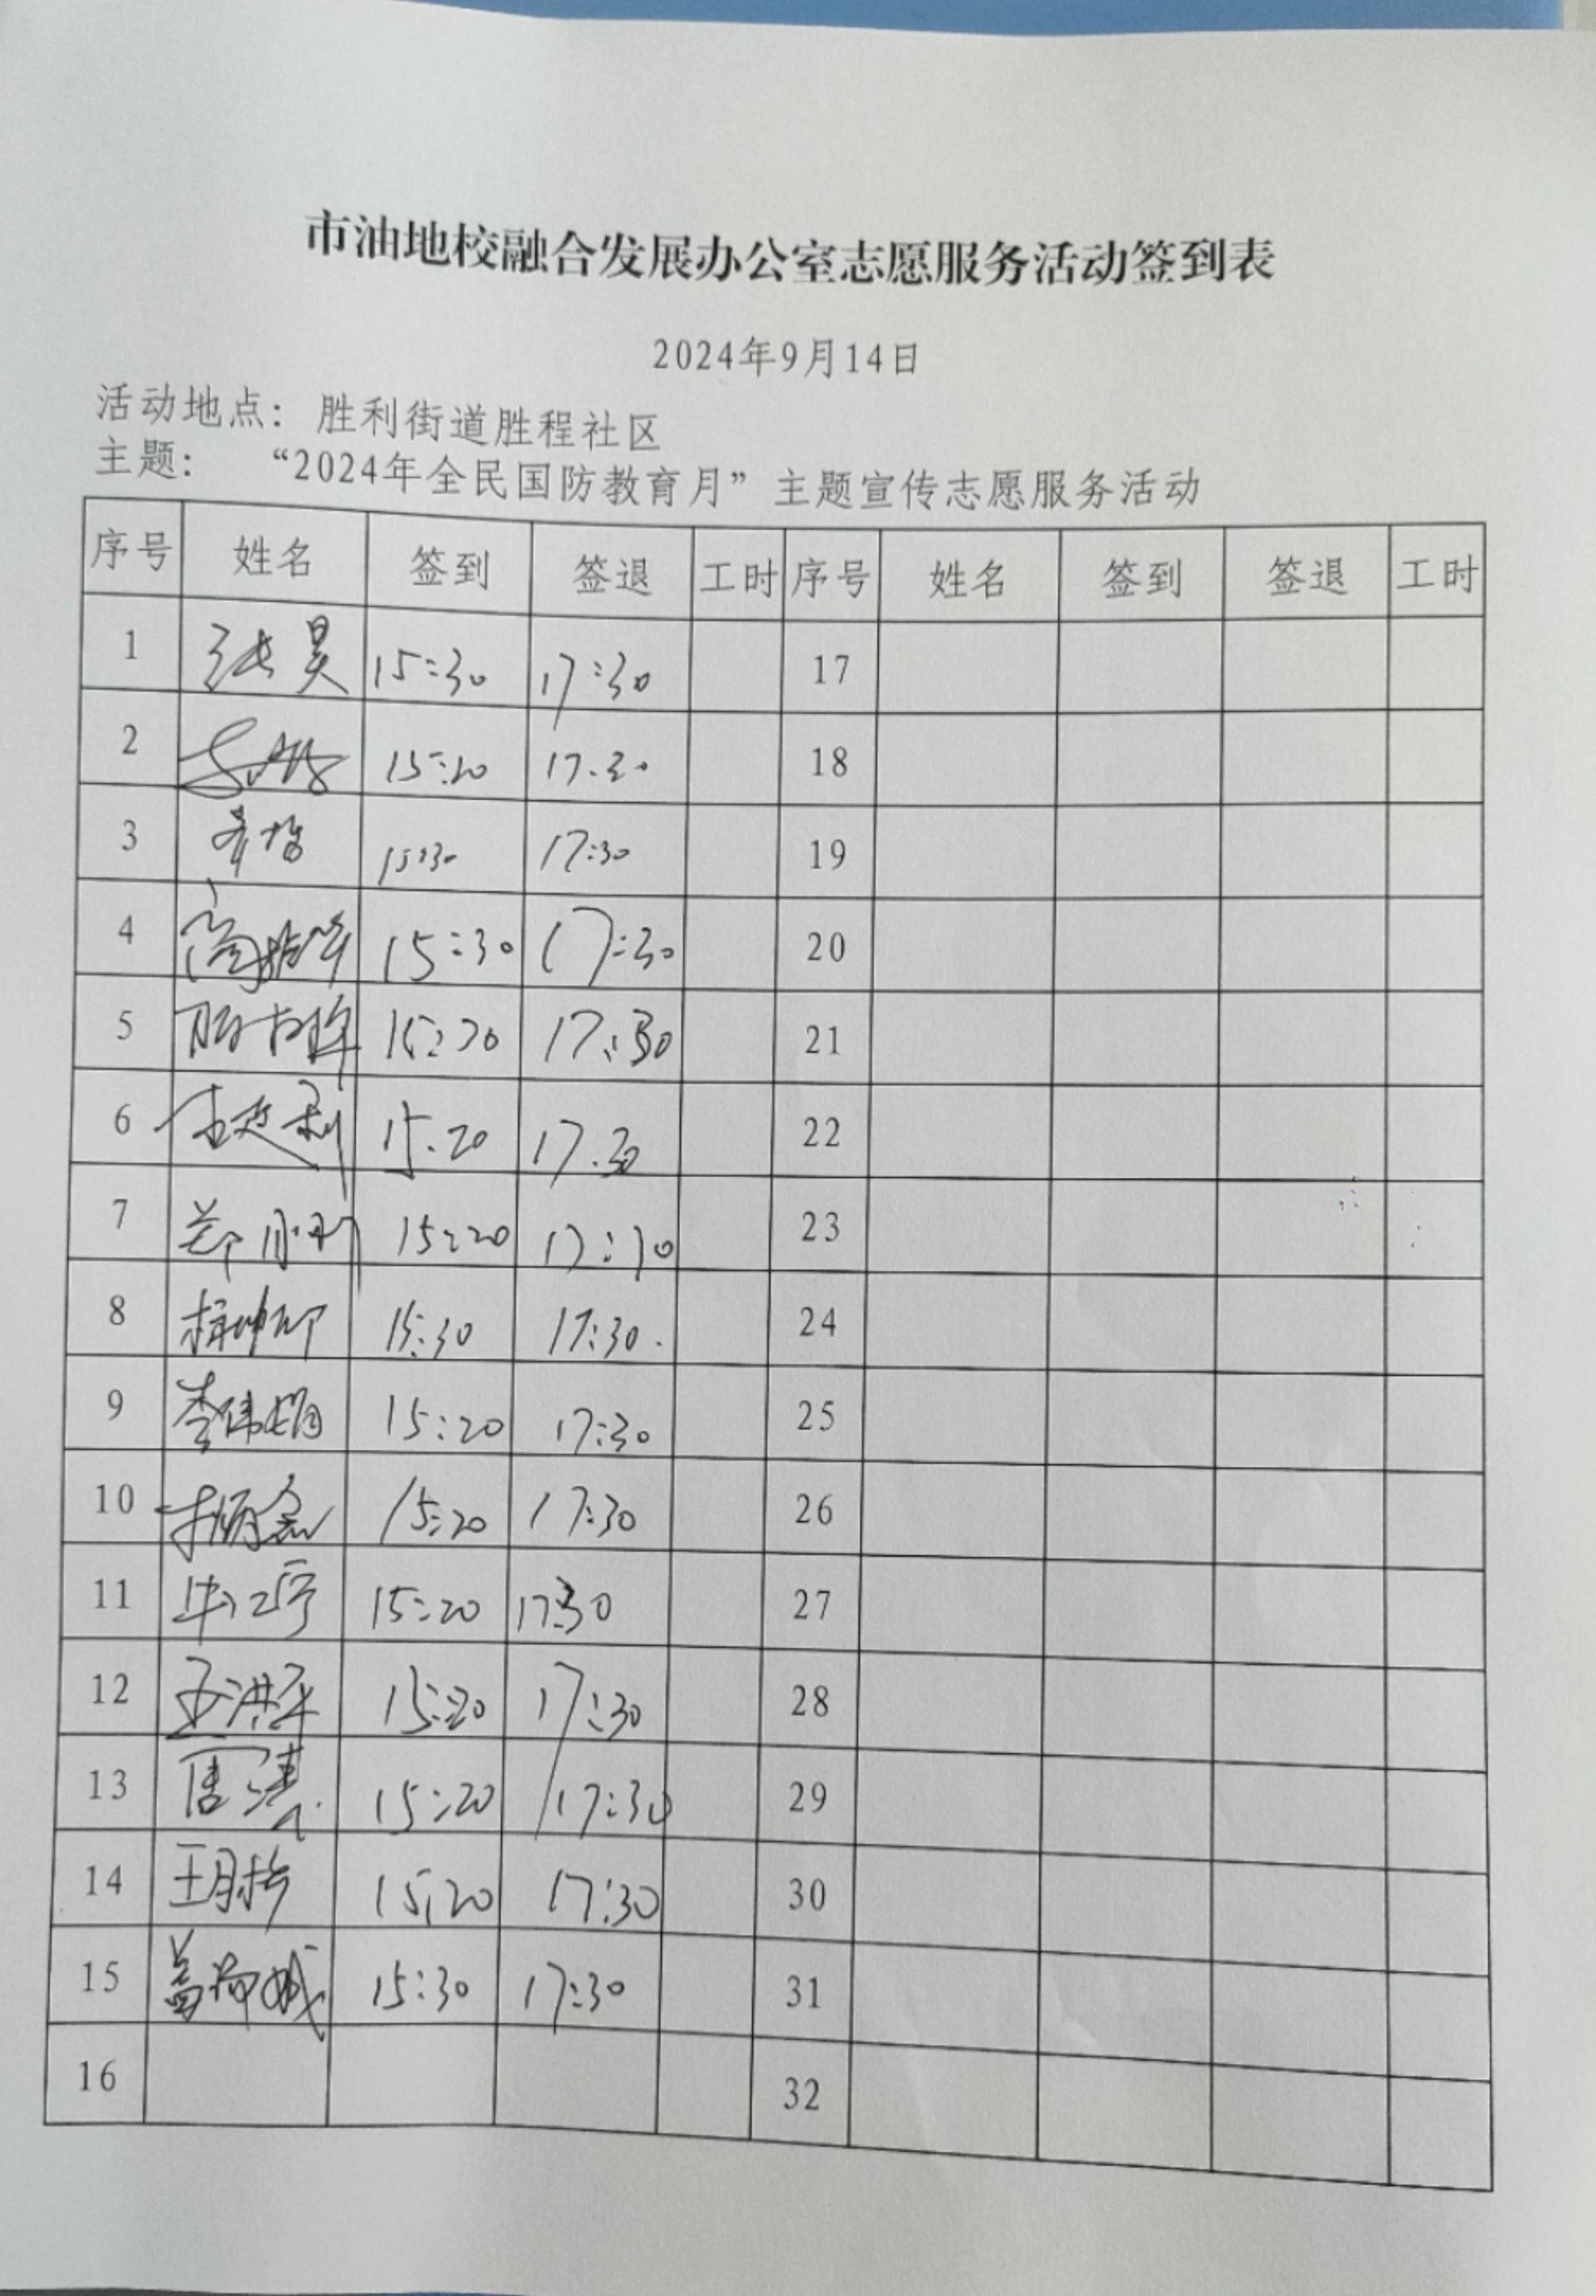 市油地校融合发展办公室志愿服务活动签到表
2024年9月14日
活动地点： 胜利街道胜程社区
主题： “2024年全民国防教育月”主题宣传志愿服务活动
序号 姓名 签到 签退 工时 序号 姓名 签到 签退 工时
1 张昊 15:30 17:30 17
2 15:20 17:30 18
3 15:30 17:30 19
4 15:30 17:30 20
5 17:30 21
6 15.20 17.30 22
7 15:20 23
8 15:30 17:30 24
9 李伟娟 15:20 17:30 25
10 15:20 17:30 26
11 15:20 17:30 27
12 15:20 17:30 28
13 唐涛 15:20 17:30 29
14 15:20 17:30 30
15 15:30 17:30 31
16 32